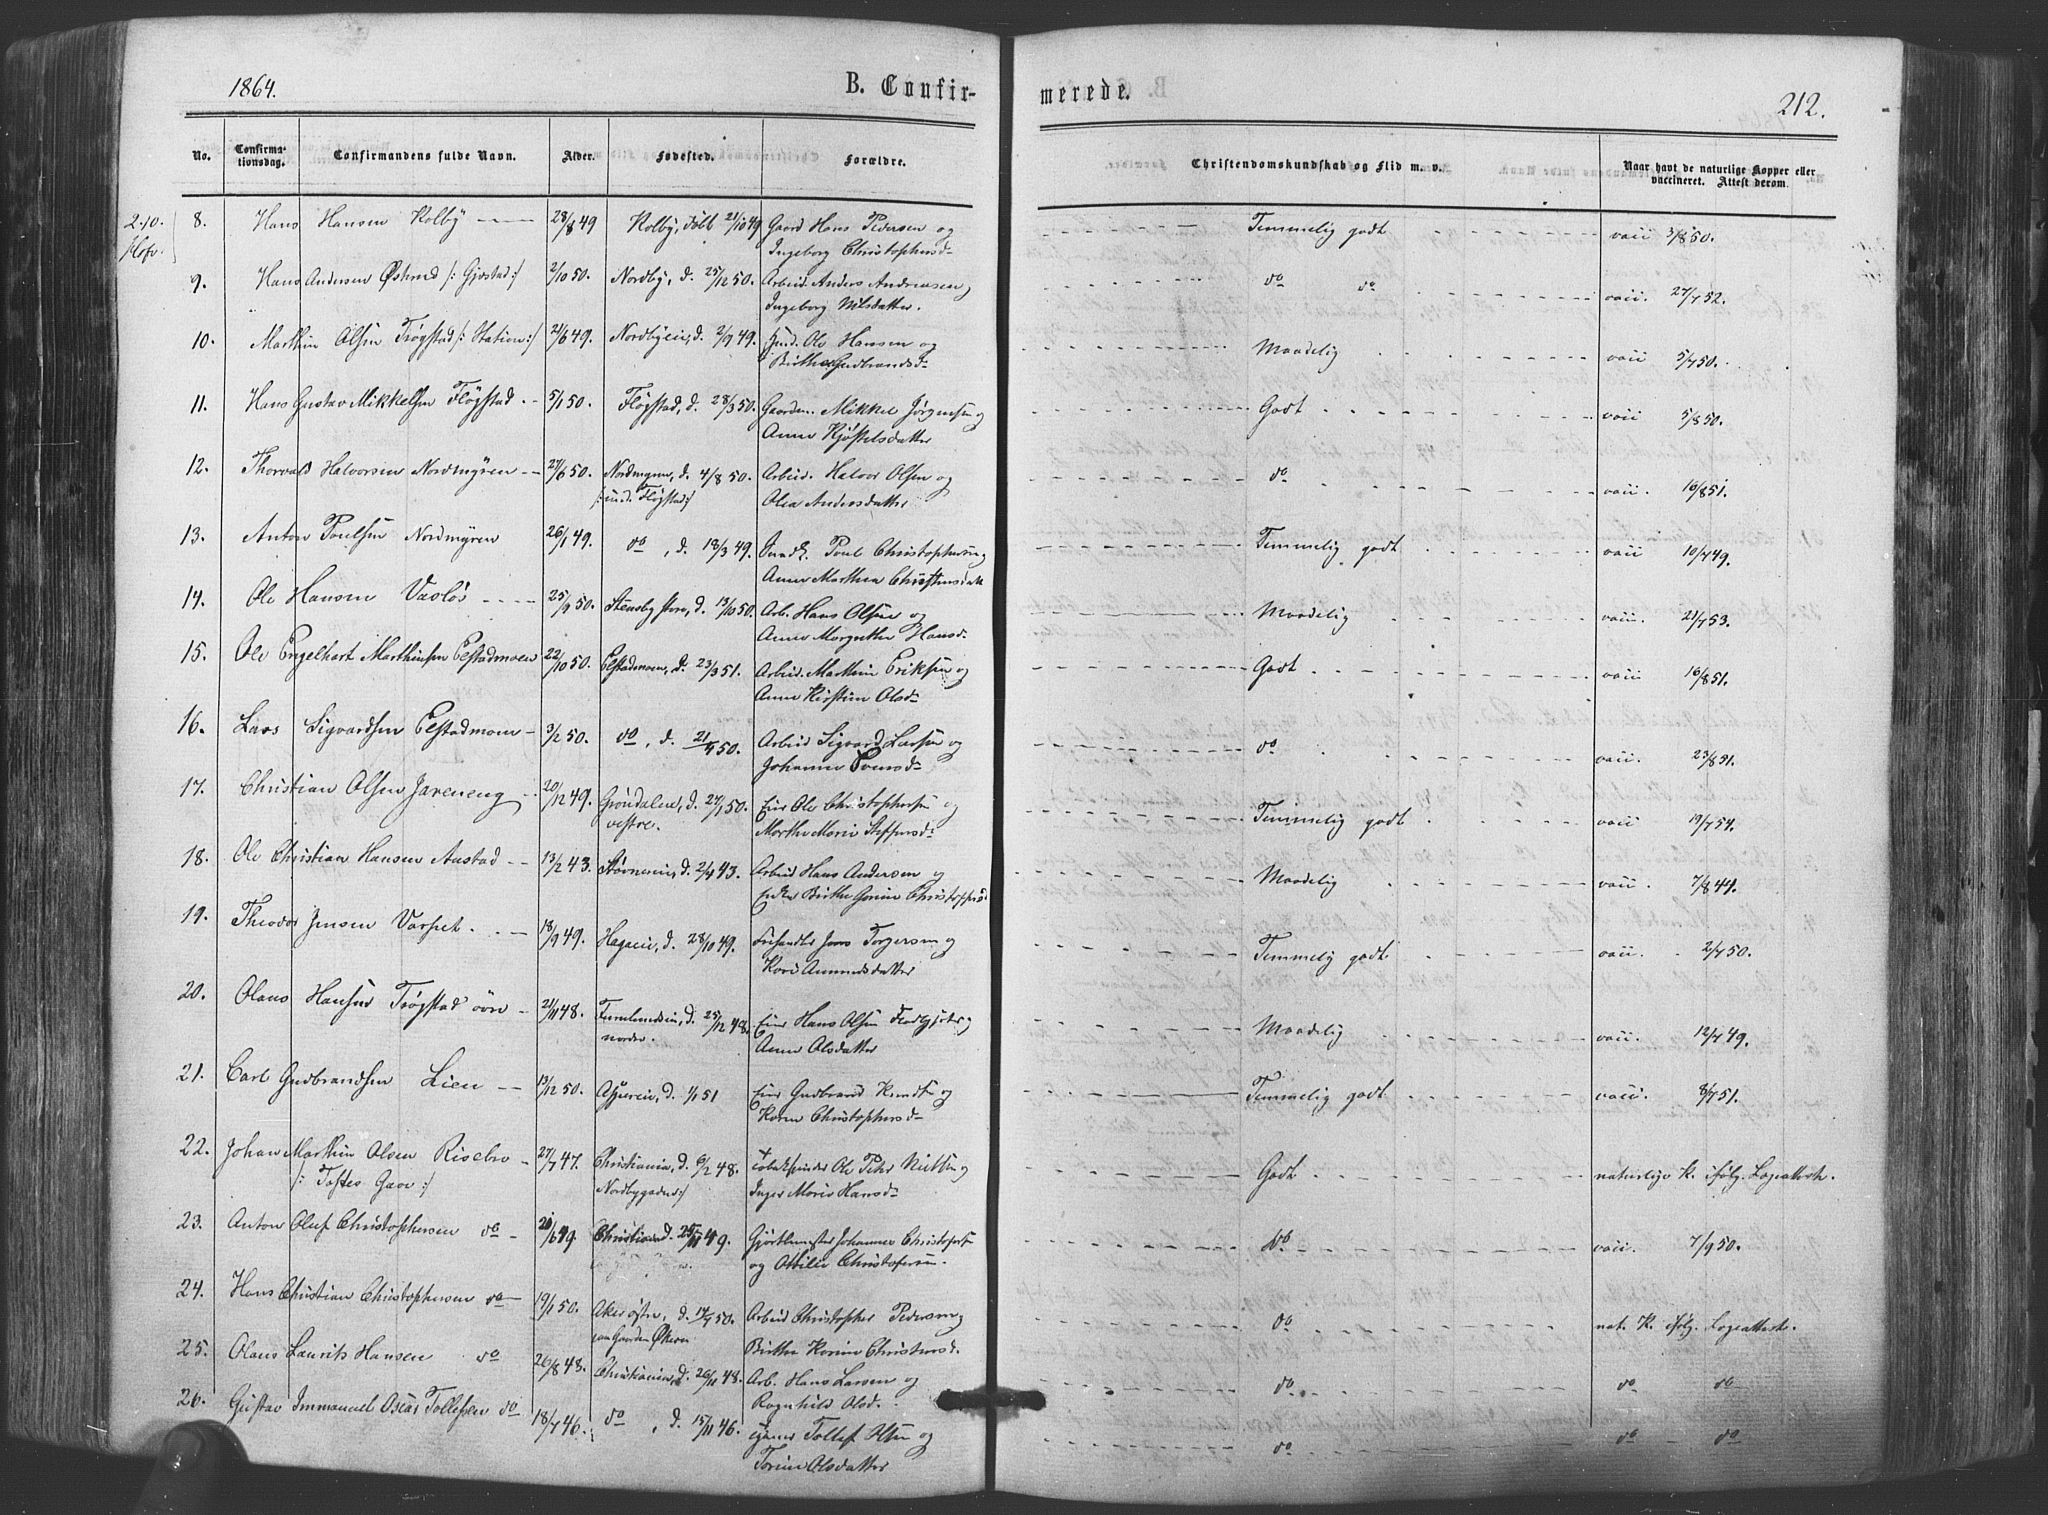 1864.
B. Confirmerede.
212.
No. Confirmationsdag. Confirmandens fulde Navn. Alder. Fødested. Forældre. Christendomskundskab og Flid m. v. Naar havt de naturlige Kopper eller vaccineret. Attest derom.
2/10.
8. Hans Hansen Kolby 28/8 49 Kolby, døbt 21/10 49 Gaard Hans Pedersen og Temmelig godt vacc 3/8 50.
Ingeborg Christophersd
9. Hans Andersen Østrud /: Gjestad :/ 2/10 50. Nordby, d. 25/12 50. Arbeid Anders Andreasen og do do vacc 27/7 52.
Ingeborg Nilsdatter.
10. Marthin Olsen Trøgstad /: Station :/ 21/6 49. Nordbyeie, d. 2/9 49. Ole Hansen og Maadelig vacc 5/7 50.
Birthe Gudbrandsd
11. Hans Gustav Mikkelsen Fløgstad 5/1 50. Fløgstad, d. 28/3 50. Gaardm. Mikkel Jørgensen og Godt vacc 5/8 50.
Anne Kjøstelsdatter
12. Thorvald Halvorsen Nordmyren 27/6 50. Nordmyren, d. 4/8 50. Arbeid. Halvor Olsen og do vacc 16/8 51.
/: und. Fløgstad :/ Olea Andersdatter
13. Anton Poulsen Nordmyren 26/1 49. do, d. 18/3 49. Poul Christophersen og Temmelig godt vacc 10/7 49.
Anne Marthea
14. Ole Hansen Vasløs 25/9 50. Stensby store, d. 13/10 50. Arb. Hans Olsen og Maadelig vacc. 21/7 53.
Anne Margrethe Hansd
15. Ole Engelhart Marthinsen Elstadmoen 22/10 50. Elstadmoen, d. 23/3 51. Arbeid. Marthin Eriksen og Godt vacc 16/8 51.
Anne Kirstine Olsd
16. Lars Sigvardsen Elstadmoen 3/2 50. do, d. 21/4 50. Arbeid Sigvard Larsen og do vacc. 23/8 51.
Johanne
17. Christian Olsen Jareneng 20/12 49. Grøndalen, d. 27/1 50. Ole Christophersen og Temmelig godt vacc 19/7 54.
vestre. Marthe Marie Steffensd
18. Ole Christian Hansen Austad 13/2 43. Støvnereie, d. 2/4 43. Arbeid Hans Andersen og Maadelig vacc. 7/8 44.
Birthe Gorine
19. Theodor Jensen Varpet 18/9 49. Hagaeie, d. 28/10 49. Jens Torgersen og Temmelig godt vacc. 2/7 50.
Kari Amundsdatter
20. Olaus Hansen Trøgstad øvre 21/11 48. d. 25/12 48. Hans Olsen og Maadelig vacc. 12/7 49.
nordre. Anne Olsdatter
21. Carl Gudbrandsen Lien 13/12 50. Aspereie, d. 1/1 51 Gudbrand Knudts og Temmelig godt vacc. 8/7 51.
Karen Christophersd
22. Johan Marthin Olsen Risebro 27/7 47. Christiania, d. 6/2 48. Ole Peter Nielsen og Godt naturlige K. ifølg. Lægeattest.
/: Tostes Gave :/ Nordbygaden :/ Inger Marie Hansd
23. Anton Oluf Christophersen do 21/6 49 Christiania d. 25/11 49. Gjørtlermester Johannes Christophersen do vacc. 7/9 50.
og Otilie Christofersen.
24. Hans Christian Christophersen do 19/1 50. Aker østre, d. 14/7 50. Arbeid Christopher Pedersen og do nat. K. ifølg. Lægeattest.
paa Gaarden Økern Birthe Karine Christensd.
25. Olaus Laurits Hansen do 26/8 48. Christiania, d. 26/11 48. Arb. Hans Larsen og do do do
Ragnhild Olsd.
26. Gustav Immanuel Oscar Tollefsen do 18/7 46. do, d. 15/11 46. Tollef Olsen og do do do
Torine Olsdatter